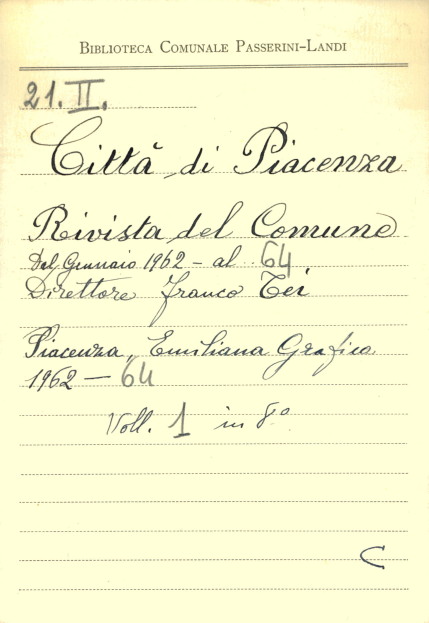 BIBLIOTECA COMUNALE PASSERINI-LANDI
21. II.
Città di Piacenza
Rivista del Comune
Dal Gennaio 1962 - al 64
Direttore Franco Tei
Piacenza, Emiliana Grafica
1962 — 64
Voll. 1 in 8°
C